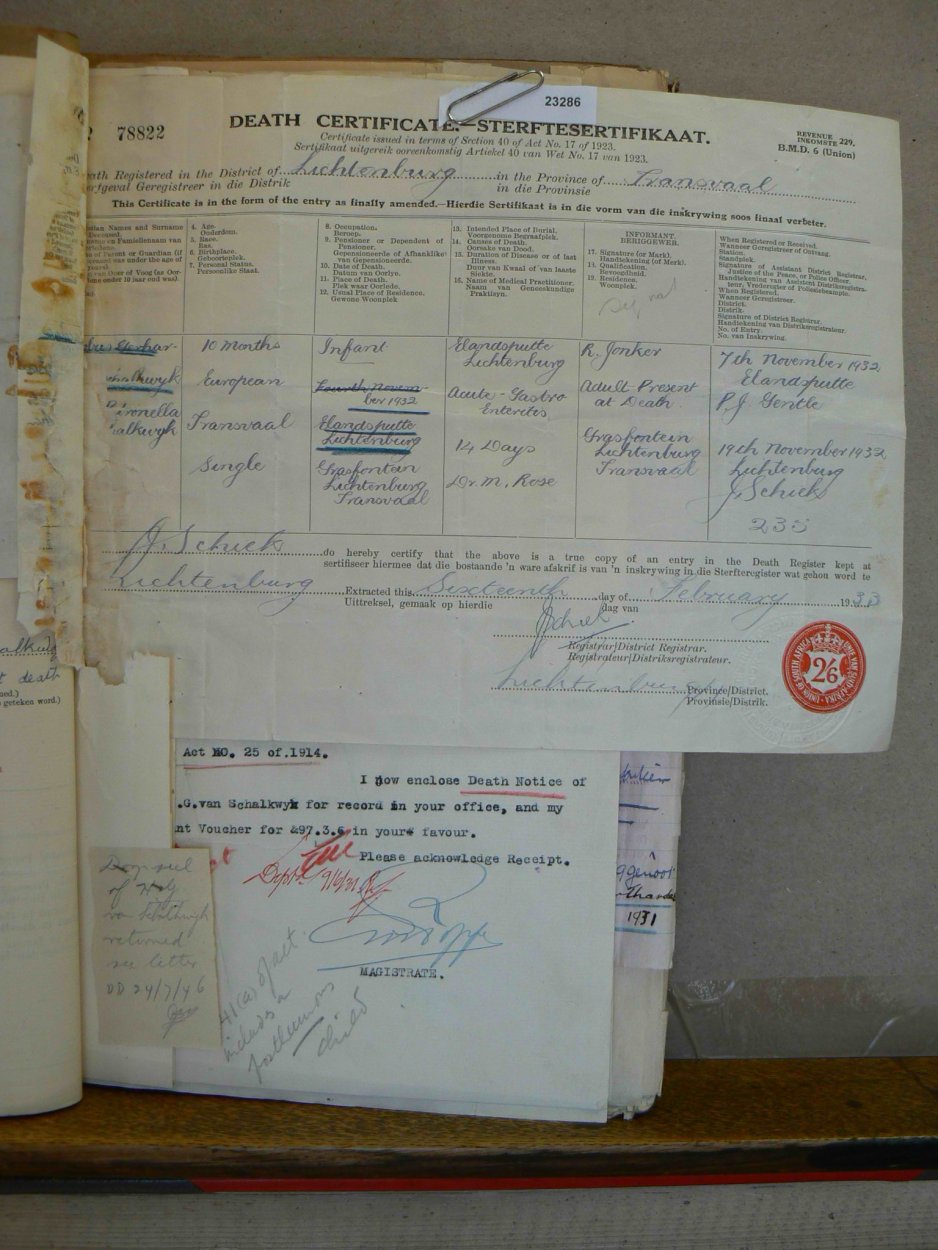 23286
78822
DEATH CERTIFICATE.—STERFTESERTIFIKAAT.
Certificate issued in terms of Section 40 of Act No. 17 of 1923.
Sertifikaat uitgereik ooreenkomstig Artiekel 40 van Wet No. 17 van 1923.
REVENUE 229.
INKOMSTE
B.M.D. 6 (Union)
ath Registered in the District of Lichtenburg in the Province of Transvaal
ertgeval Geregistreer in die Distrik in die Provinsie
This Certificate is in the form of the entry as finally amended.—Hierdie Sertifikaat is in die vorm van die inskrywing soos finaal verbeter.
4. Age.
Ouderdom.
5. Race.
Ras.
6. Birthplace.
Geboorteplek.
7. Personal Status.
Persoonlike Staat.
8. Occupation.
Beroep.
9. Pensioner or Dependent of
Pensioner.
Gepensioneerde of Afhanklike
van Gepensioneerde.
10. Date of Death.
Datum van Oorlye.
11. Place of Death.
Plek waar Oorlede.
12. Usual Place of Residence.
Gewone Woonplek
13. Intended Place of Burial.
Voorgenome Begraafplek.
14. Causes of Death.
Oorsake van Dood.
15. Duration of Disease or of last
Illness.
Duur van Kwaal of van laaste
Siekte.
16. Name of Medical Practitioner.
Naam van Geneeskundige
Praktisyn.
INFORMANT.
BERIGGEWER.
17. Signature (or Mark).
Handtekening (of Merk).
18. Qualification.
Bevoegdheid.
19. Residence.
Woonplek.
When Registered or Received.
Wanneer Geregistreer of Ontvang.
Station.
Standplek.
Signature of Assistant District Registrar,
Justice of the Peace, or Police Officer.
When Registered.
Wanneer Geregistreer.
District.
Distrik.
Signature of District Registrar.
Handtekening van Distriksregistrateur.
No. of Entry.
No. van Inskrywing.
10 Months
European
Transvaal
Single
Infant
Fourth Novem-
ber 1932
Elandsputte
Lichtenburg
Grasfontein
Lichtenburg
Transvaal
Elandsputte
Lichtenburg
Acute-Gastro
Enterites
14 Days
Dr. M. Rose
R. Jonker
Adult Present
at Death
Grasfontein
Lichtenburg
Transvaal
7th November 1932
Elandsputte
P. J. Gentle
19th November 1932
Lichtenburg
J. Schiek
235
J. Schiek do hereby certify that the above is a true copy of an entry in the Death Register kept at
sertifiseer hiermee dat die bostaande 'n ware afskrif is van 'n inskrywing in die Sterfteregister wat gehou word te
Lichtenburg Extracted this Sixteenth day of February 1933
Uittreksel, gemaak op hierdie dag van
J Schiek
Registrar/District Registrar.
Registrateur/Distriksregistrateur.
Lichtenburg Province/District.
Provinsie/Distrik.
UNION OF SOUTH AFRICA · UNIE VAN SUID AFRIKA
2/6
t death
geteken word.)
Act NO. 25 of.1914.
I now enclose Death Notice of
.G.van Schalkwyk for record in your office, and my
nt Voucher for £97.3.6 in your favour.
Please acknowledge Receipt.
MAGISTRATE.
of
van Schalkwyk
returned
see letter
DD 24/7/46
of act
includes a
posthumous
child
1931